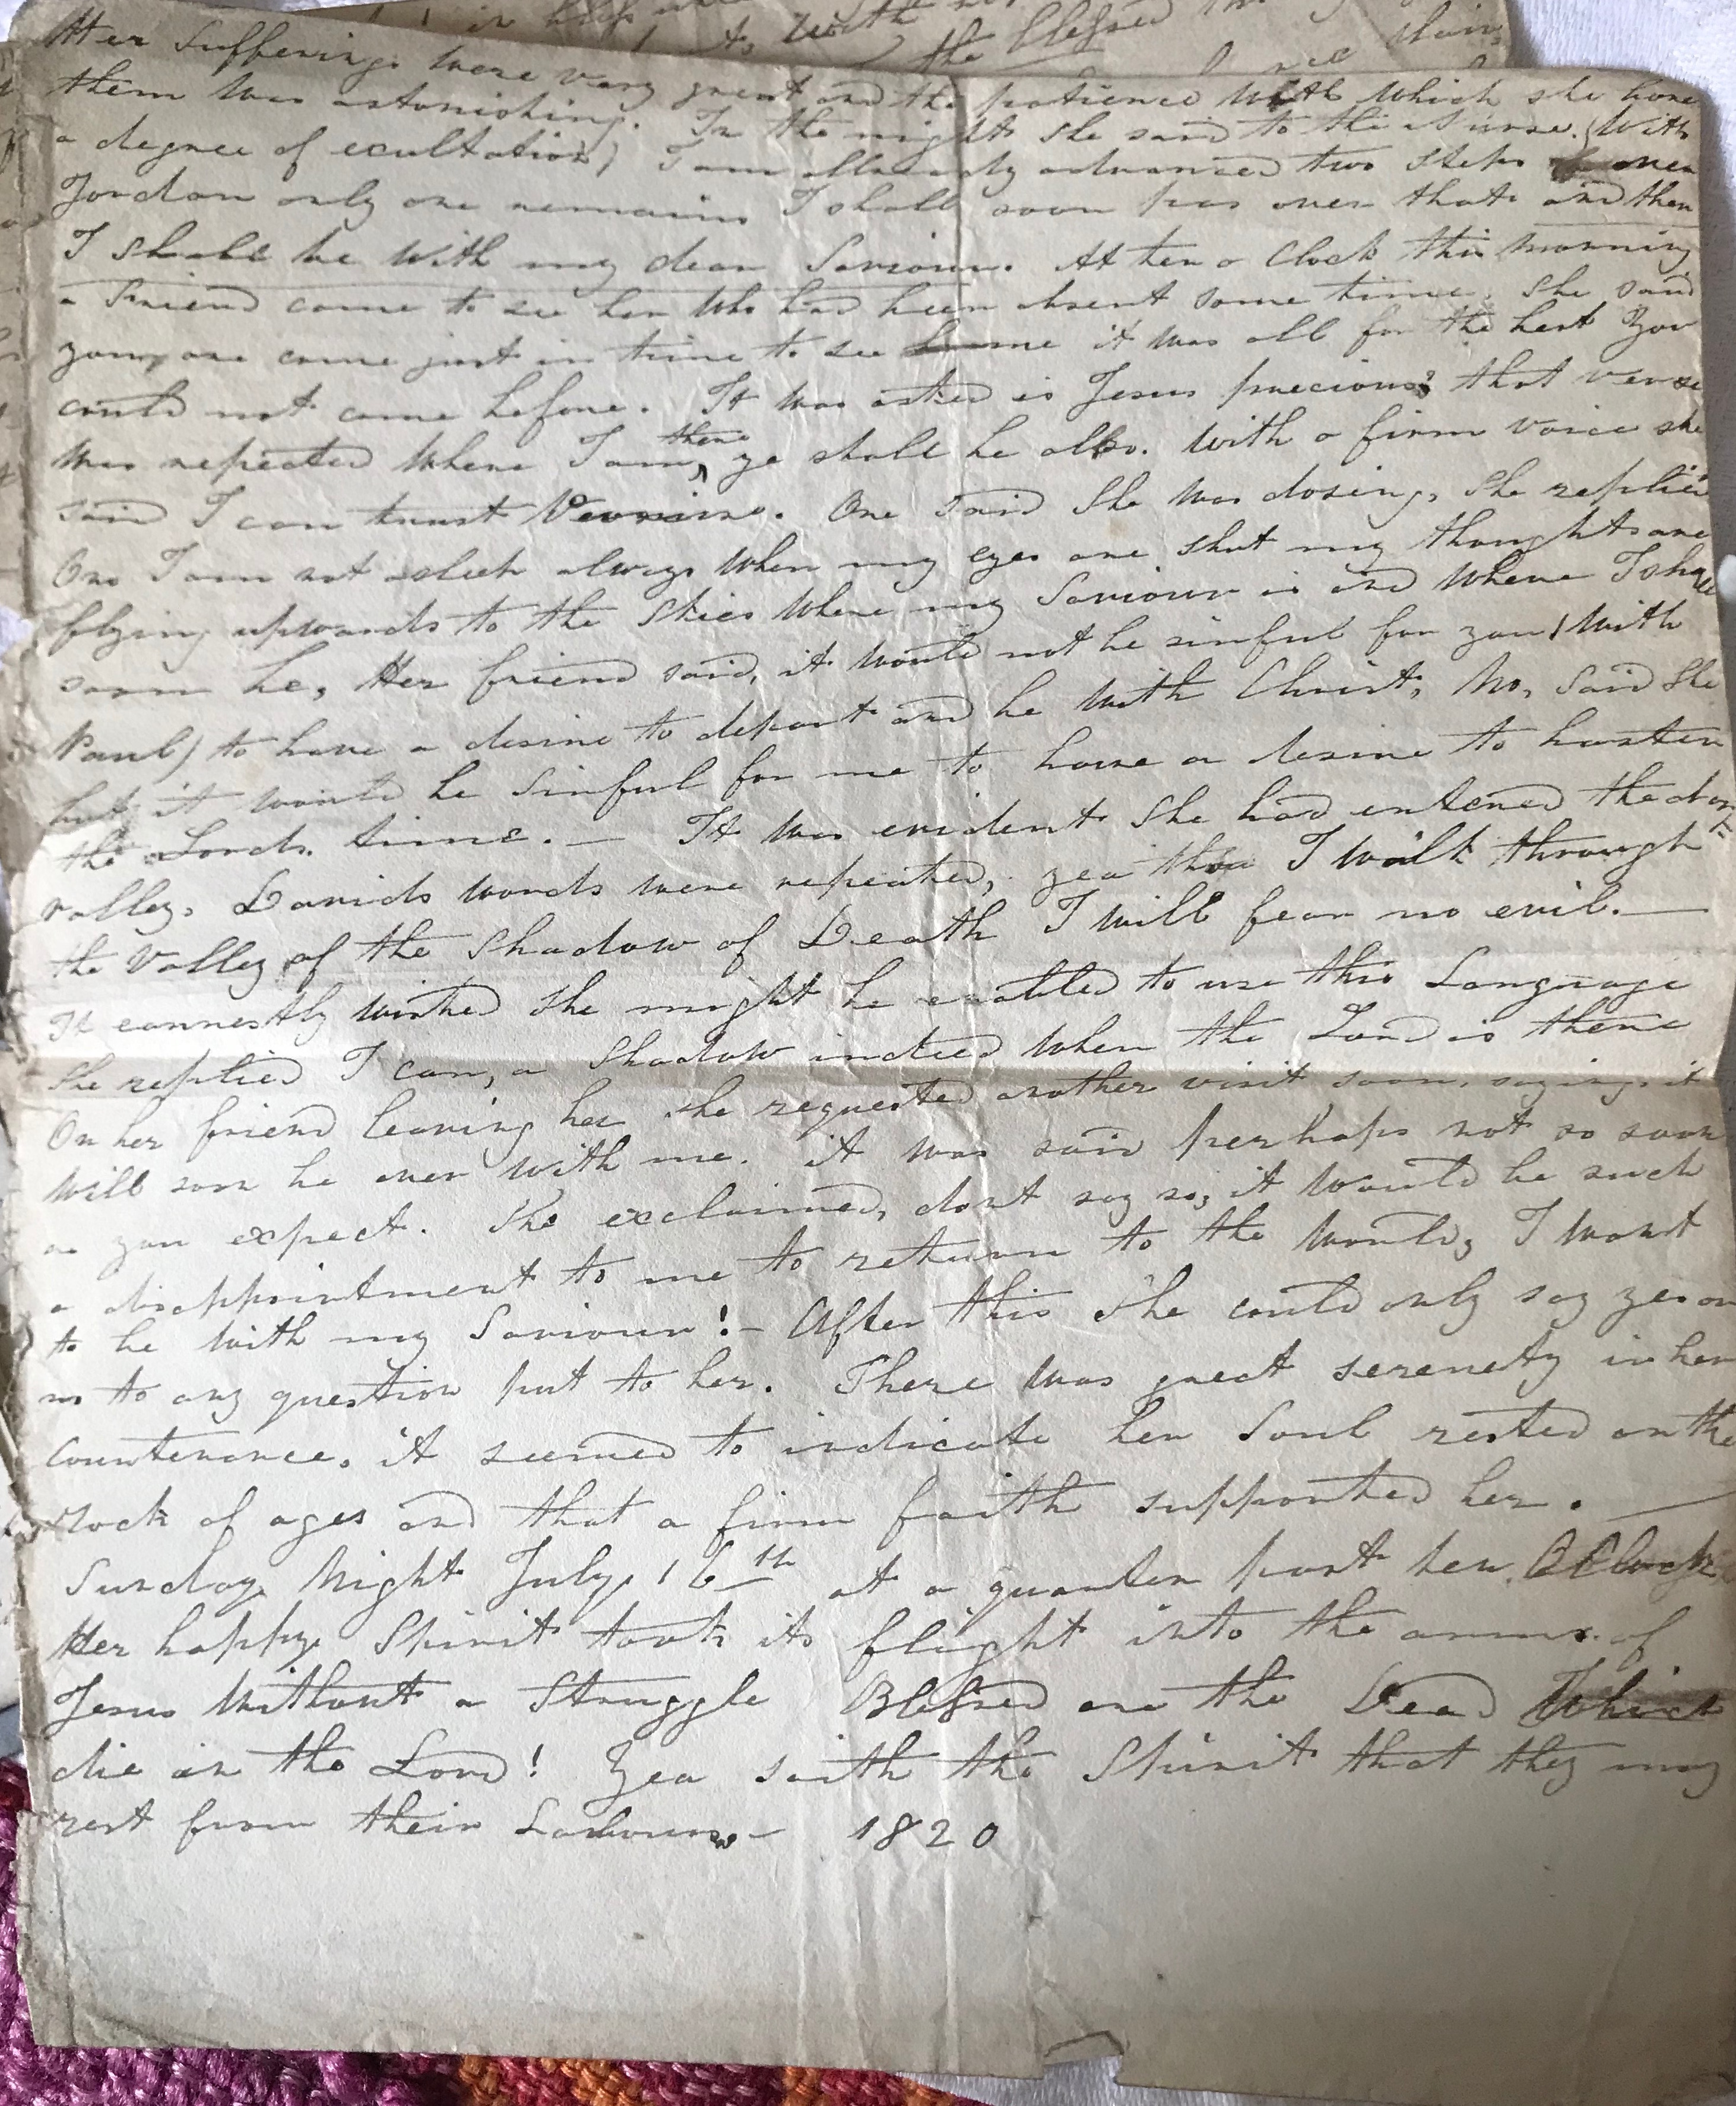 is
with
the blessed
Her Sufferings were very great and the patience with which she bore
them was astonishing. In the night she said to the Nurse. (With
a degree of exultation) I am allready advanced two steps over
Jordan only one remains I shall soon pas over that and then
I shall be with my dear Saviour. At ten o Clock this Morning
a Friend came to see her who had been absent some time. She said
you are come just in time to see me it was all for the best You
could not come before. It was asked is Jesus precious? that verse
was repeated Where I am, there ye shall be also. With a firm voice she
said I can trust. One said She was dosing, She replied
One I am not asleep always when my eyes are shut my thoughts are
flying upwards to the Skies where my Saviour is and where I shall
soon be, Her friend said, it would not be sinful for you (with
Paul) to have a desire to depart and be with Christ, No, said She
but it would be Sinful for me to have a desire to hasten
the Lords time. — It was evident She had entered the dark
valley. Davids words were repeated, yea tho I walk through
the Valley of the Shadow of Death I will fear no evil. —
It earnestly wished She might be enabled to use this Language
She replied I can, a Shadow indeed when the Lord is there
On her friend leaving her she requested another visit soon, saying, it
will soon be over with me. it was said perhaps not so soon
as you expect. She exclaimed, dont say so, it would be such
a disappointment to me to return to the World, I want
to be with my Saviour! — After this She could only say yes or
no to any question put to her. There was great serenety in her
Countenance, it seemed to indicate her Soul rested on the
rock of ages and that a firm faith supported her. —
Sunday Night July 16th at a quarter past ten O Clock
Her happy Spirit took its flight into the arms of
Jesus Without a Struggle Blessed are the Dead Which
die in the Lord! Yea saith the Spirit that they may
rest from their Labours — 1820